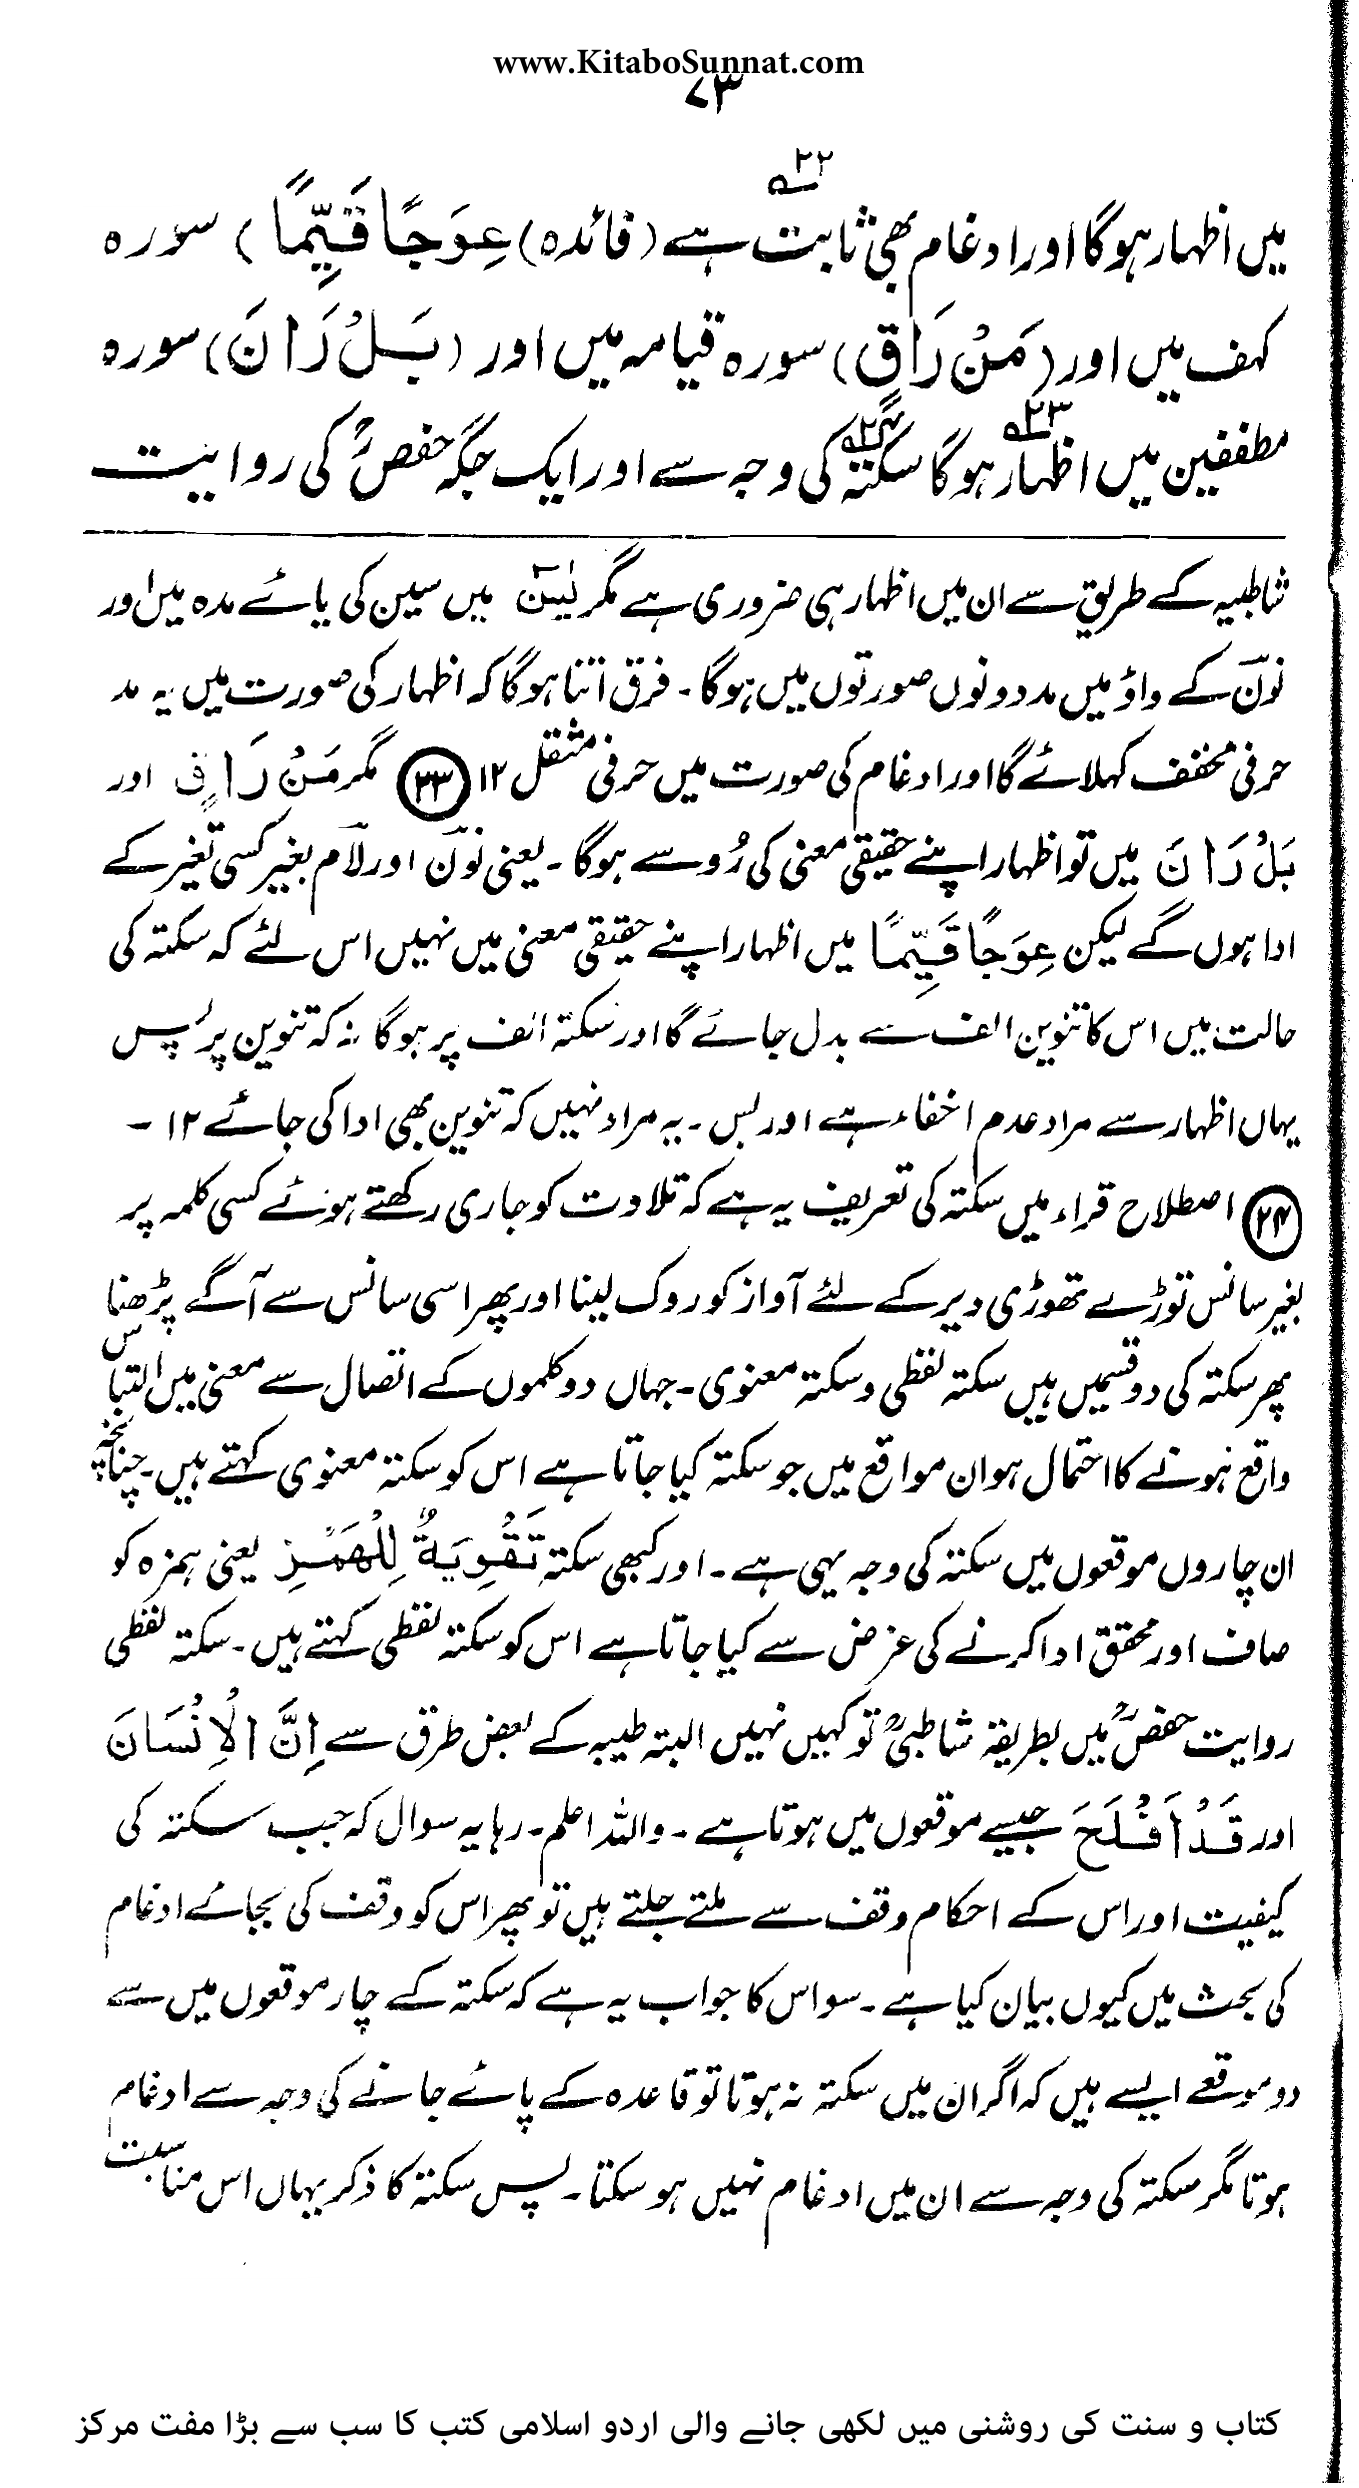 www.KitaboSunnat.com
۷۳
میں اظہار ہوگا اور ادغام بھی ثابت ہے۲۲ (فائدہ) عِوَجًا قَیِّمًا) سورہ
کہف میں اور (مَنْ رَاقٍ) سورہ قیامہ میں اور (بَلْ رَانَ) سورہ
مطففین میں اظہار۲۳ ہوگا سکتہ۲۴ کی وجہ سے اور ایک جگہ حفصؒ کی روایت
شاطبیہ کے طریق سے ان میں اظہار ہی ضروری ہے مگر یٰسٓ میں سین کی یائے مدہ میں اور
نوٓن کے واؤ میں مد دونوں صورتوں میں ہوگا۔ فرق اتنا ہوگا کہ اظہار کی صورت میں یہ مد
حرفی مخفف کہلائے گا اور ادغام کی صورت میں حرفی مثقل ۱۲ (۲۳) مگر مَنْ رَاقٍ اور
بَلْ رَانَ میں تو اظہار اپنے حقیقی معنی کی رُو سے ہوگا۔ یعنی نوٓن اور لآم بغیر کسی تغیر کے
ادا ہوں گے لیکن عِوَجًا قَیِّمًا میں اظہار اپنے حقیقی معنی میں نہیں اس لئے کہ سکتہ کی
حالت میں اس کا تنوین الف سے بدل جائے گا اور سکتہ الف پر ہوگا نہ کہ تنوین پر۔ پس
یہاں اظہار سے مراد عدم اخفاء ہے اور بس۔ یہ مراد نہیں کہ تنوین بھی ادا کی جائے ۱۲۔
(۲۴) اصطلاح قراء میں سکتہ کی تعریف یہ ہے کہ تلاوت کو جاری رکھتے ہوئے کسی کلمہ پر
بغیر سانس توڑے تھوڑی دیر کے لئے آواز کو روک لینا اور پھر اسی سانس سے آگے پڑھنا
پھر سکتہ کی دو قسمیں ہیں سکتہ لفظی و سکتہ معنوی۔ جہاں دو کلموں کے اتصال سے معنی میں التباس
واقع ہونے کا احتمال ہو ان مواقع میں جو سکتہ کیا جاتا ہے اس کو سکتہ معنوی کہتے ہیں۔ چنانچہ
ان چاروں موقعوں میں سکتہ کی وجہ یہی ہے۔ اور کبھی سکتہ تَقْوِیَةٌ لِلْهَمْزِ یعنی ہمزہ کو
صاف اور محقق ادا کرنے کی غرض سے کیا جاتا ہے اس کو سکتہ لفظی کہتے ہیں۔ سکتہ لفظی
روایت حفصؒ میں بطریقہ شاطبیؒ تو کہیں نہیں البتہ طیبہ کے بعض طرق سے اِنَّ الْاِنْسَانَ
اور قَدْ اَفْلَحَ جیسے موقعوں میں ہوتا ہے۔ واللہ اعلم۔ رہا یہ سوال کہ جب سکتہ کی
کیفیت اور اس کے احکام وقف سے ملتے جلتے ہیں تو پھر اس کو وقف کی بجائے ادغام
کی بحث میں کیوں بیان کیا ہے۔ سو اس کا جواب یہ ہے کہ سکتہ کے چار موقعوں میں سے
دو موقعے ایسے ہیں کہ اگر ان میں سکتہ نہ ہوتا تو قاعدہ کے پائے جانے کی وجہ سے ادغام
ہوتا مگر سکتہ کی وجہ سے ان میں ادغام نہیں ہو سکتا۔ پس سکتہ کا ذکر یہاں اس مناسبت
کتاب و سنت کی روشنی میں لکھی جانے والی اردو اسلامی کتب کا سب سے بڑا مفت مرکز